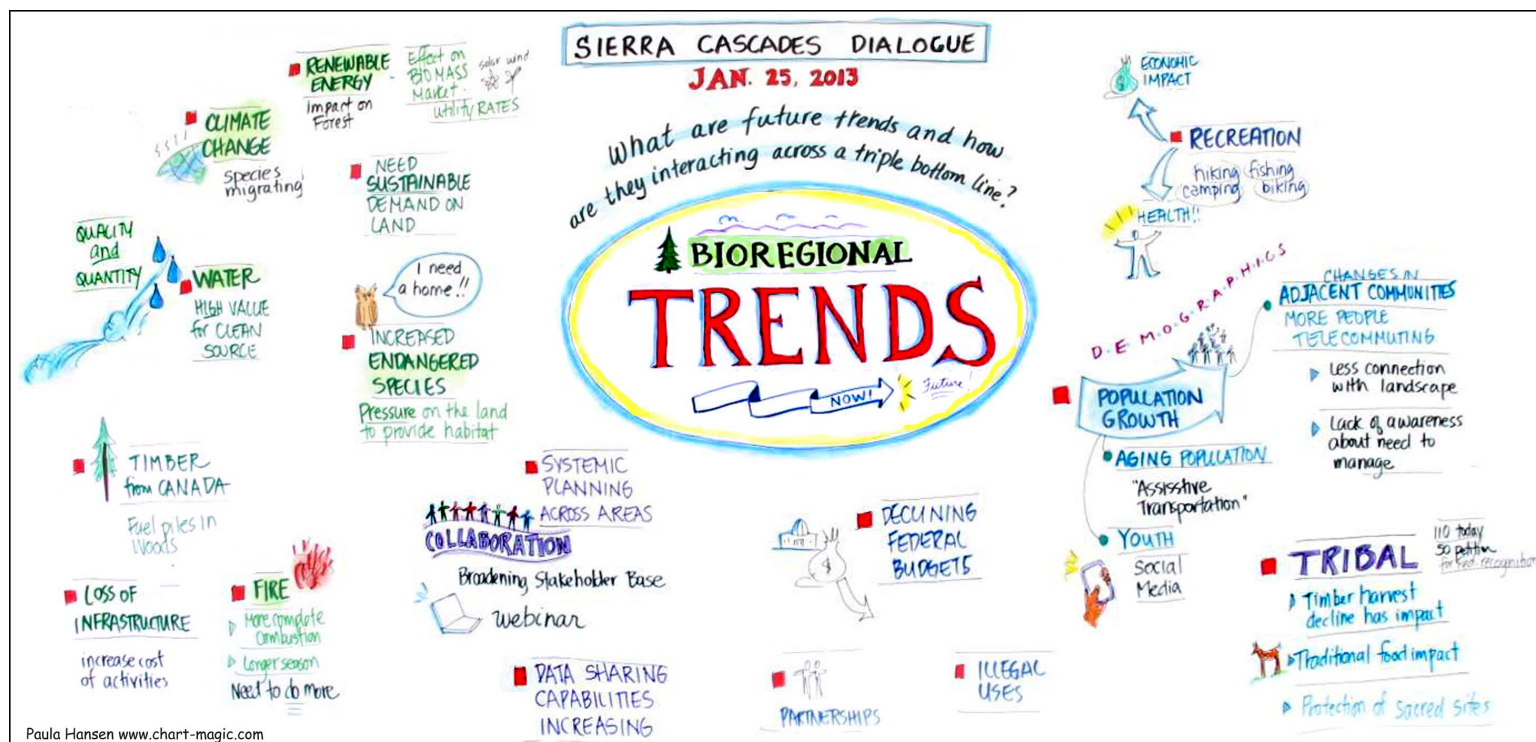 SIERRA CASCADES DIALOGUE
JAN. 25, 2013
What are future trends and how
are they interacting across a triple bottom line?
BIOREGIONAL
TRENDS
NOW!
Future!
RENEWABLE
ENERGY
Impact on
Forest
Effect on
BIOMASS
Market.
solar wind
utility RATES
CLIMATE
CHANGE
Species
migrating
NEED
SUSTAINABLE
DEMAND ON
LAND
QUALITY
and
QUANTITY
WATER
HIGH VALUE
for CLEAN
SOURCE
I need
a home!!
INCREASED
ENDANGERED
SPECIES
Pressure on the land
to provide habitat
TIMBER
from CANADA
Fuel piles in
Woods
LOSS OF
INFRASTRUCTURE
increase cost
of activities
FIRE
More complete
Combustion
Longer season
Need to do more
SYSTEMIC
PLANNING
ACROSS AREAS
COLLABORATION
Broadening Stakeholder Base
webinar
DATA SHARING
CAPABILITIES
INCREASING
DECLINING
FEDERAL
BUDGETS
$
PARTNERSHIPS
ILLEGAL
USES
ECONOMIC
IMPACT
RECREATION
hiking fishing
camping biking
HEALTH!!
D.E.M.O.G.R.A.P.H.I.C.S
POPULATION
GROWTH
CHANGES IN
ADJACENT COMMUNITIES
MORE PEOPLE
TELECOMMUTING
Less connection
with landscape
Lack of awareness
about need to
manage
AGING POPULATION
"Assisstive
Transportation"
YOUTH
Social
Media
TRIBAL
110 today
50 petition
for fed. recognition
Timber harvest
decline has impact
Traditional food impact
Protection of Sacred Sites
Paula Hansen www.chart-magic.com